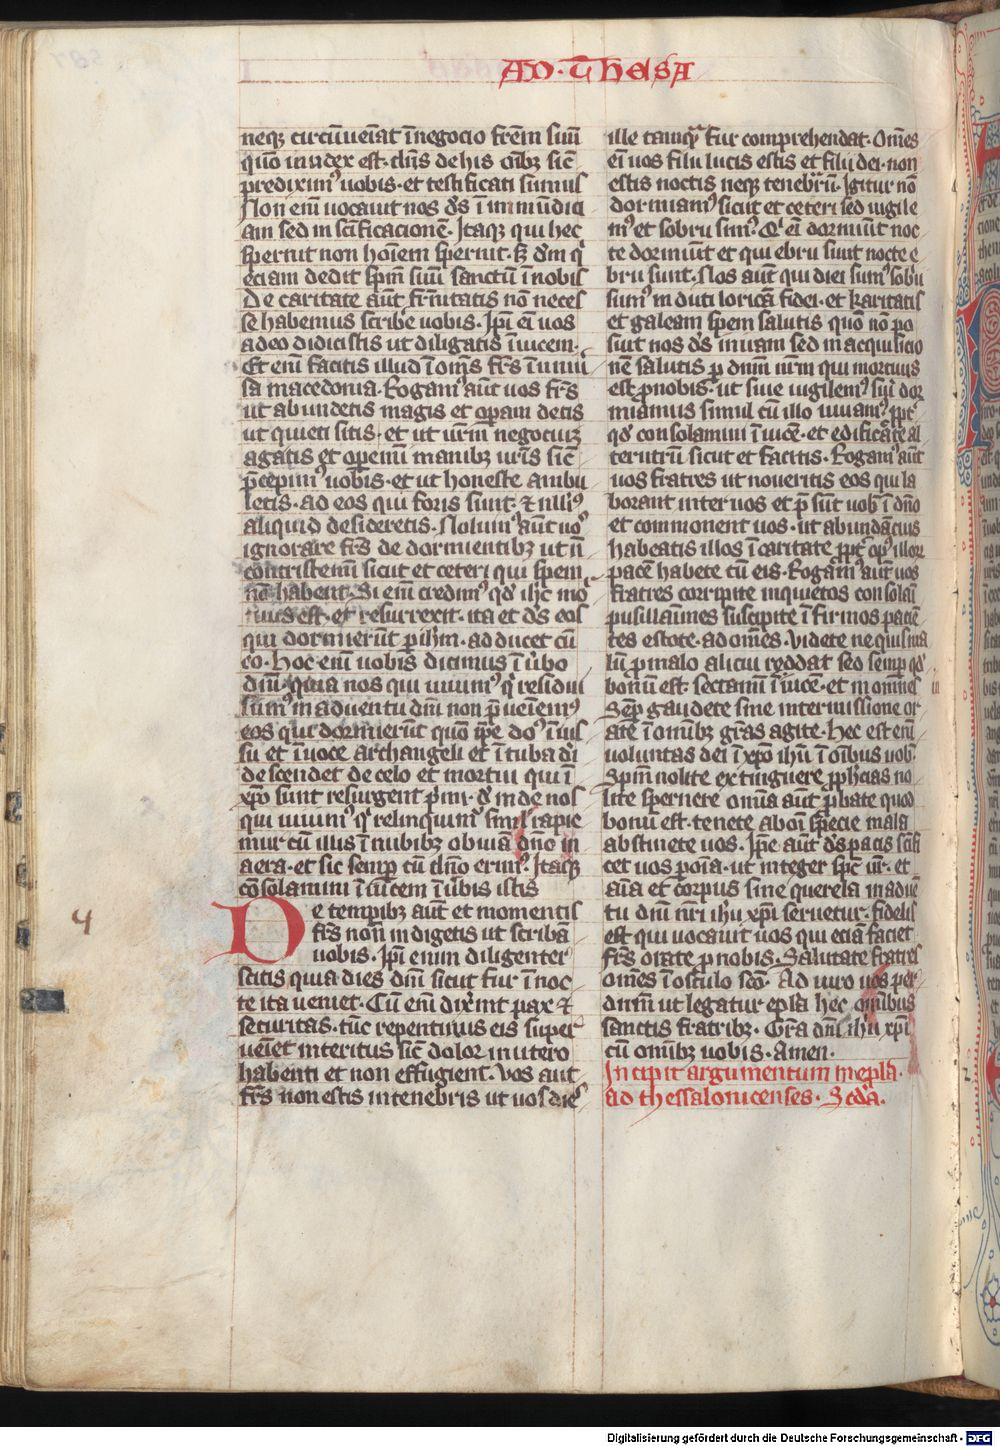 AD · THESSA
neqꝫ circūueiat ī negocio frēm suū
quō iudex est · dn̄s de his oībꝫ sic̄
prediximꝰ uobis · et testificati sumus
Non em̄ uocauit nos ds̄ ī inmūdici
am sed in sc̄ificacionē · Itaqꝫ qui hec
spernit non hoīem spernit · sꝫ dm̄ qͥ
eciam dedit spm̄ suū sanctū ī nobis
De caritate aūt fr̄nitatis nō neces
se habemus scribe uobis · Ip̄i em̄ uos
a deo didicistis ut diligatis īuicem ·
Et em̄ facitis illud ī om̄s frs̄ ī uniū
sa macedonia · Rogamꝰ aūt uos frs̄
ut abundetis magis et opam detis
ut quieti sitis · et ut urm̄ negociuꝫ
agatis et opemū manibꝫ uris̄ sic̄
p̄cepimꝰ uobis · et ut honeste ambu
letis · ad eos qui foris sunt · ⁊ nulliꝰ
aliquid desideretis · Nolumꝰ aūt uoˢ
ignorare frs̄ de dormientibꝫ ut n̄
contristemī sicut et ceteri qui spem
nō habent · Si em̄ credimꝰ qd̓ ihc̄ mo
tuus est · et resurrexit · ita et ds̄ eos
qui dormierūt p ihm̄ · adducet cū
eo · Hoc em̄ uobis dicimus ī ūbo
dnī · quia nos qui uiuimꝰ qͥ residui
sumꝰ in aduentu dnī non p̄ueiemꝰ
eos qui dormierūt quō ip̄e doˢ ī ius
su et ī uoce archangeli et ī tuba di
descendet de celo et mortui qui ī
xpo sunt resurgent pͥmi · dͤ inde nos
qui uiuimꝰ qͥ relinquimͬ simͤl rapie
mur cū illis ī nubibꝫ obuia dn̄o in
aera · et sic semp cū dn̄o erimꝰ · Itaqꝫ
cōsolamini īuicem ī ūbis istis
4
De tempibꝫ aūt et momentis
frs̄ non indigetis ut scriba
uobis · Ip̄i enim diligenter
scitis quia dies dnī sicut fur ī noc
te ita ueniet · Cū em̄ dixint pax ⁊
securitas · tūc repentinus eis super
ueiet interitus sic̄ dolor in utero
habenti et non effugient · Vos aut
frs̄ non estis in tenebris ut uos dieˢ
ille tamqͣ fur comprehendat · Om̄es
em̄ uos filii lucis estis et filii dei · non
estis noctis neqꝫ tenebrͣrū · Igitur nō
dormiamꝰ sicut et ceteri sed uigile
mꝰ et sobrii simꝰ · Qͥ em̄ dormiūt noc
te dormiūt et qui ebrii sunt nocte e
brii sunt · Nos aūt qui diei sumꝰ sobrii
simꝰ induti loricā fidei · et karitatis
et galeam spem salutis quō nō po
siut nos ds̄ in iram sed in acquisicio
nē salutis p dnm̄ nrm̄ qui mortuus
est p nobis · ut siue uigilemꝰ siū dor
miamus simul cū illo uiuamꝰ · ppt
qd̓ consolamini īuicē · et edificate al
terutrū sicut et facitis · Rogamꝰ aūt
uos fratres ut noueritis eos qui la
borant inter uos et p̄sūt uob̄ ī dn̄o
et commonent uos · ut abundācius
habeatis illos ī caritate ppt opͥ illorꝫ
pacē habete cū eis · Rogamꝰ aūt uos
fratres corripite inquietos consolai
pusillaīmes suscipite īfirmos pacie
tes estote · ad om̄es · Videte ne quis ma
lū p malo alicui reddat sed semp qd̓
bonū est · sectamī īuicē · et in omnes
Sēp gaudete sine intermissione or
ate ī omībꝫ grās agite · Hec est em̄
uoluntas dei ī xpo ihū ī oībus uob̄ ·
Spm̄ nolite extinguere pphecias no
lite spernere omīa aūt pbate quod
bonū est · tenete ab oī specie mala
abstinete uos · Ip̄e aūt ds̄ pacis scīfi
cet uos p oīa · ut integer spc̄ ur̄ · et
aīa et corpus sine querela in aduē
tu dnī nri ihū xpi seruetur · fidelis
est qui uocauit uos qui eciā faciet
frs̄ orate p nobis · Salutate fratres
omēs ī osculo scō · Adiuro uos per
dnm̄ ut legatur epla hec omībus
sanctis fratribꝫ · Grā dnī ihū xpi
cū omībꝫ uobis · Amen ·
Incipit argumentum in epla ·
ad thessalonicenses · Scdā ·
Digitalisierung gefördert durch die Deutsche Forschungsgemeinschaft - DFG